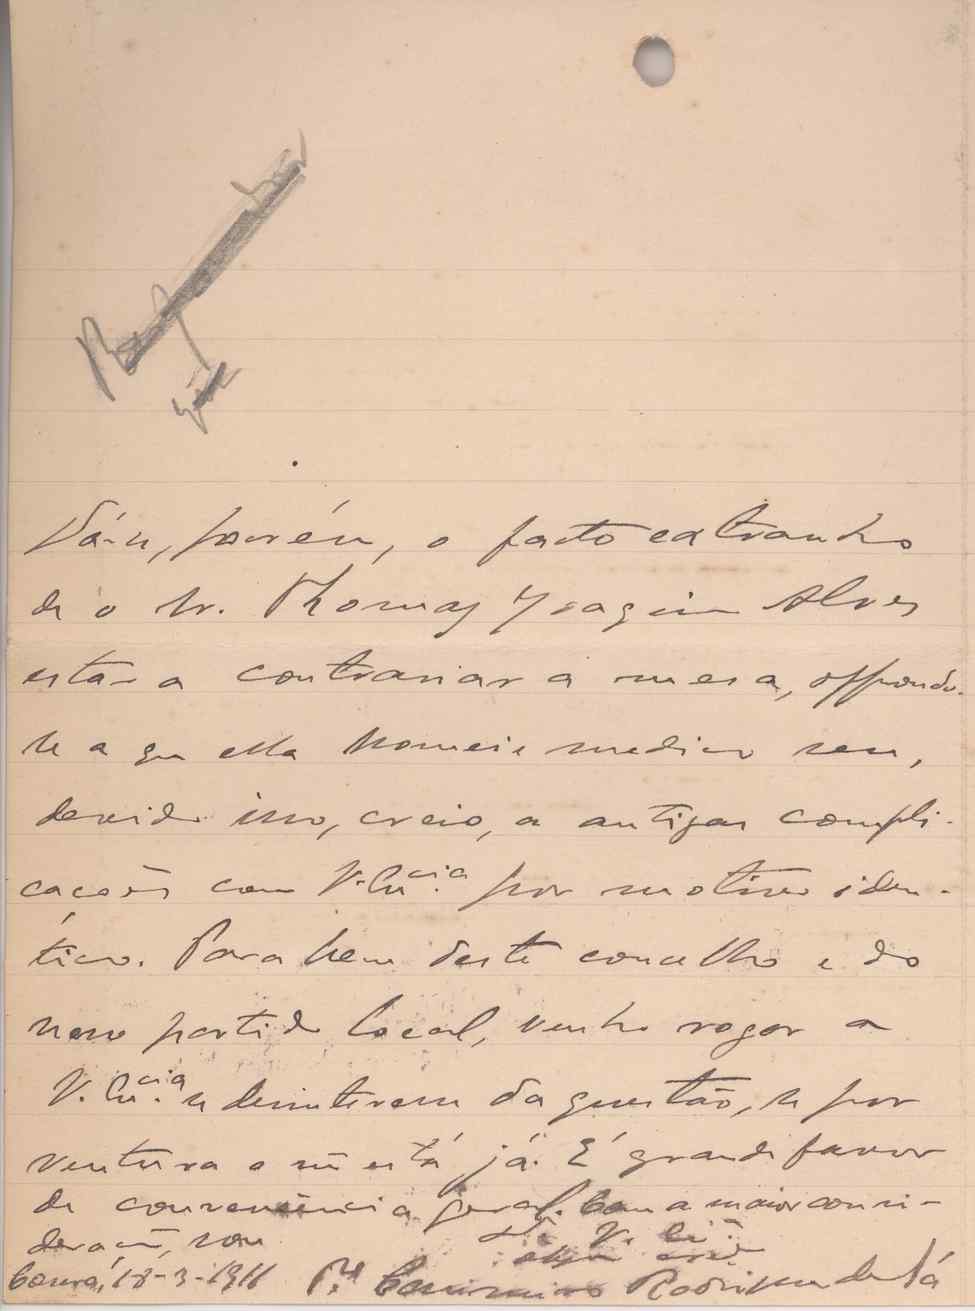 Dá-se, porém, o facto extranho
de o Sr. Thomaz Joaquim Alves
estar a contrariar a mesa, oppondo-
se a que ella nomeie medico seu,
devido isso, creio, a antigas compli-
cações com V. Ex.cia por motivo iden-
tico. Para bem deste concelho e do
nosso partido local, venho rogar a
V. Ex.cia se desinteresse da questão, se por
ventura o não está já. É grande favor
de conveniencia geral. Com a maior consi-
deração, sou
De V. Ex.cia
Coura, 18-3-1911 P.e Casimiro Rodrigues de Sá